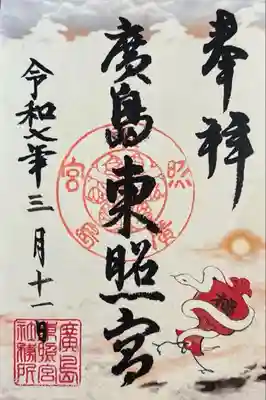 奉拝
廣島東照宮
令和七年三月十一日
廣島
東照宮
社務所